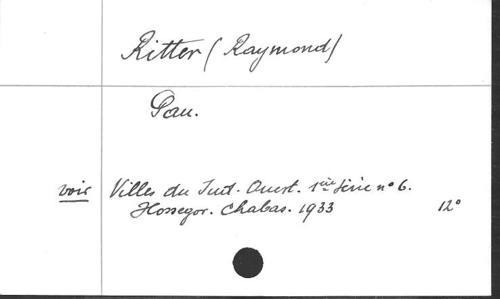 Ritter (Raymond)
Pau.
voir Villes du Sud-Ouest. 1ère série n° 6.
Hossegor. Chabas. 1933 12°